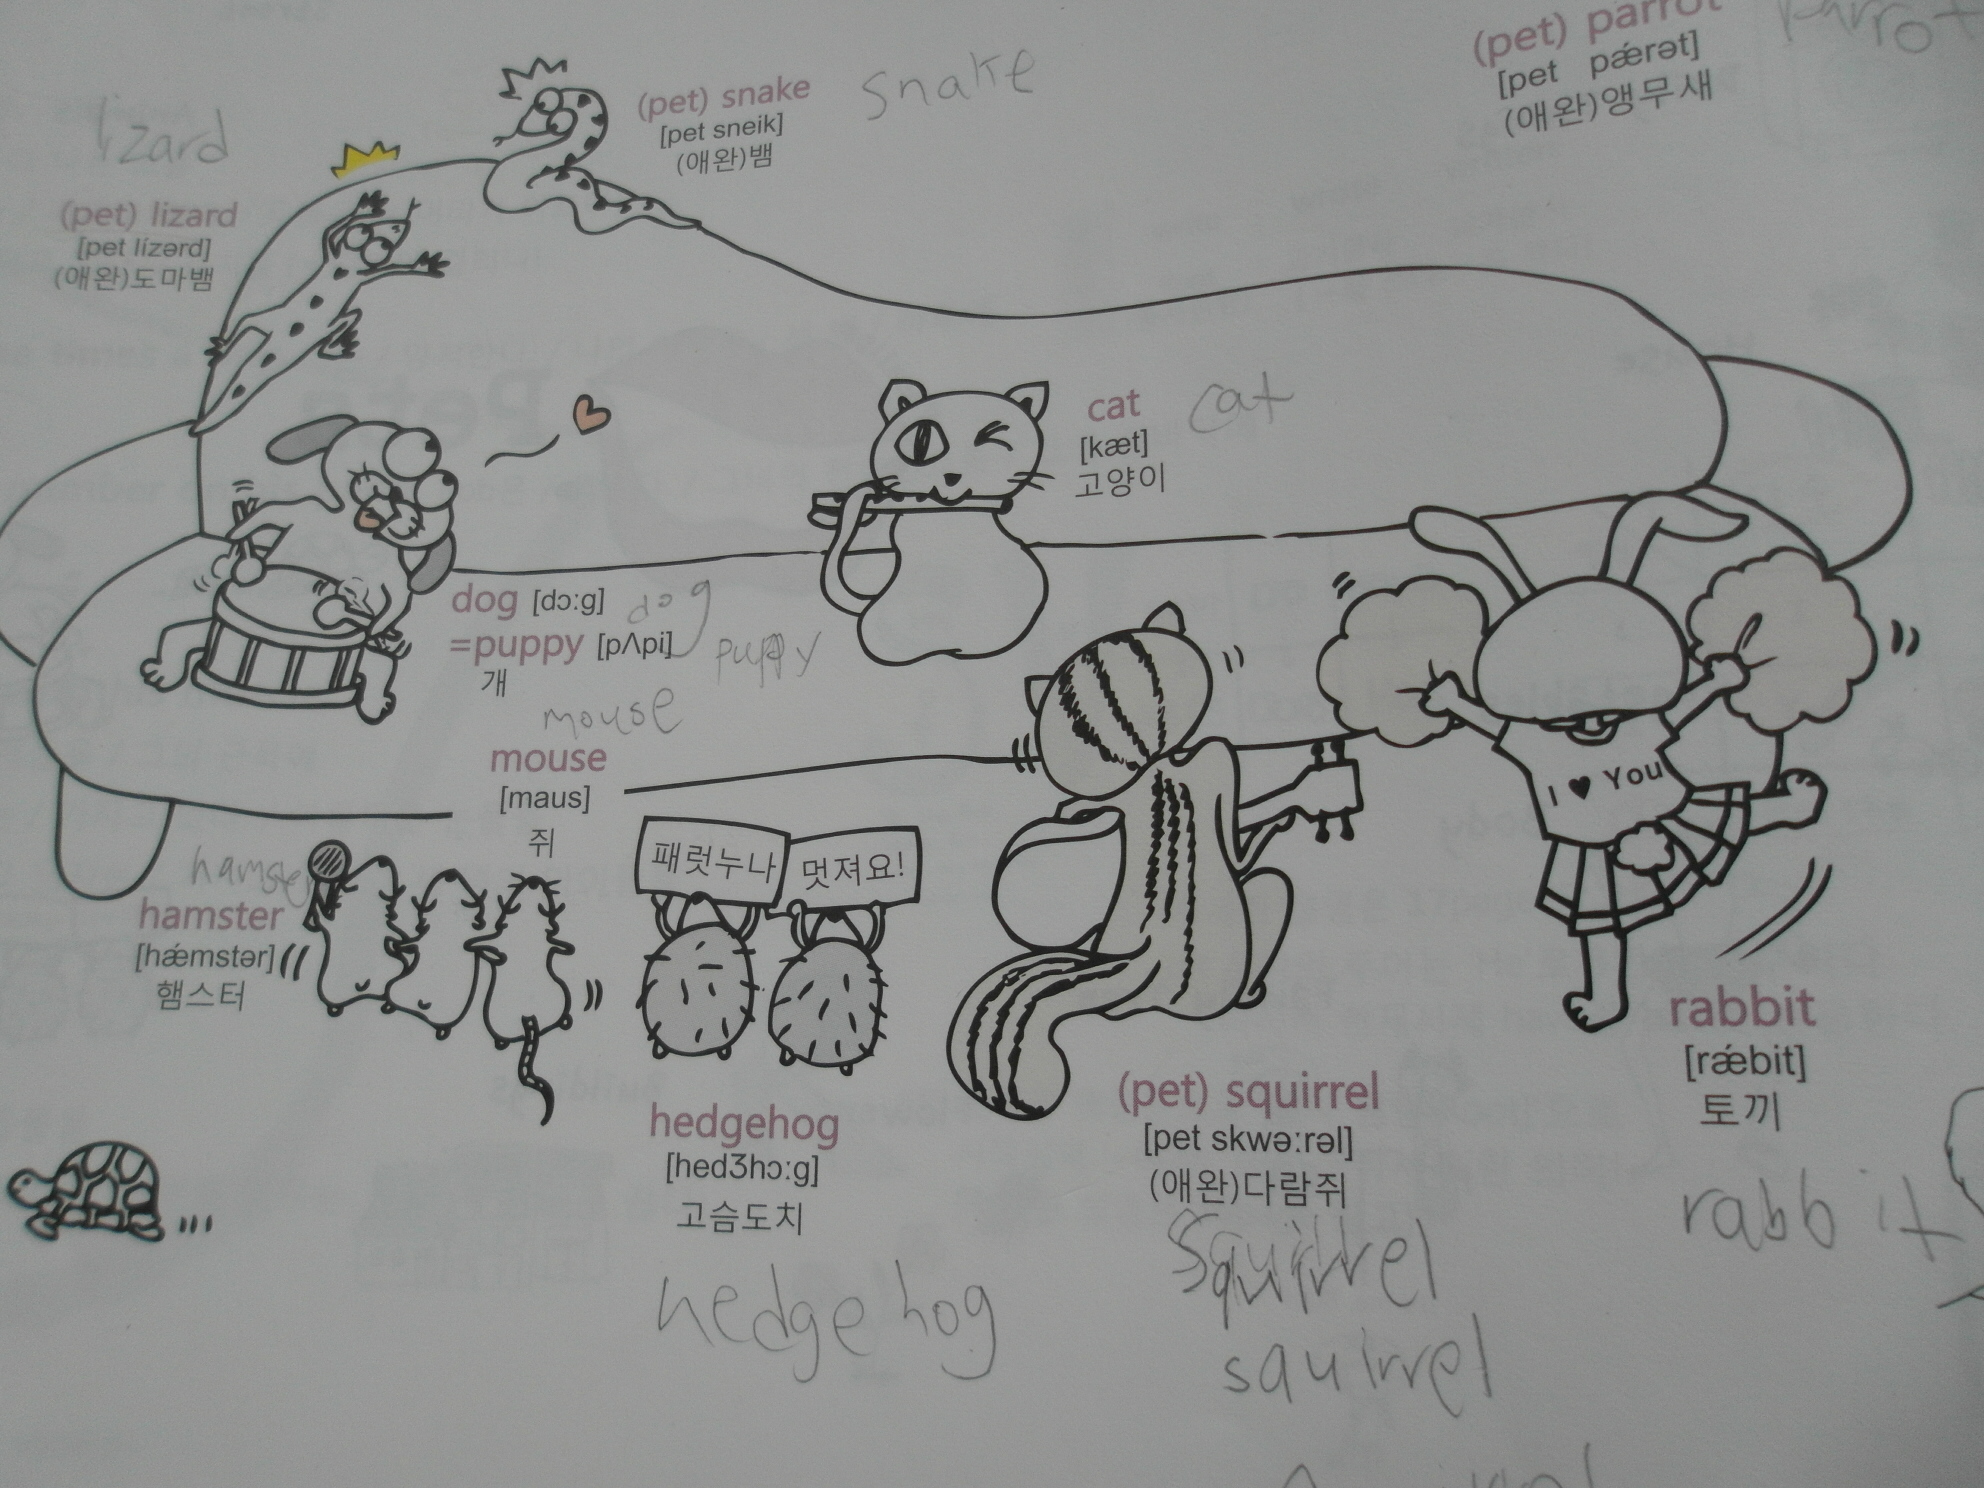 (pet) parrot
parrot
[pet pǽrət]
(애완)앵무새
(pet) snake
snake
[pet sneik]
(애완)뱀
lizard
(pet) lizard
[pet lízərd]
(애완)도마뱀
cat
cat
[kæt]
고양이
dog [dɔ:g]
dog
=puppy [pʌpi]
puppy
개
mouse
mouse
[maus]
쥐
I ♥ You
hamster
hamster
[hǽmstər]
햄스터
패럿누나
멋져요!
hedgehog
[hedʒhɔ:g]
고슴도치
hedgehog
(pet) squirrel
[pet skwə:rəl]
(애완)다람쥐
squirrel
squirrel
rabbit
[rǽbit]
토끼
rabbit